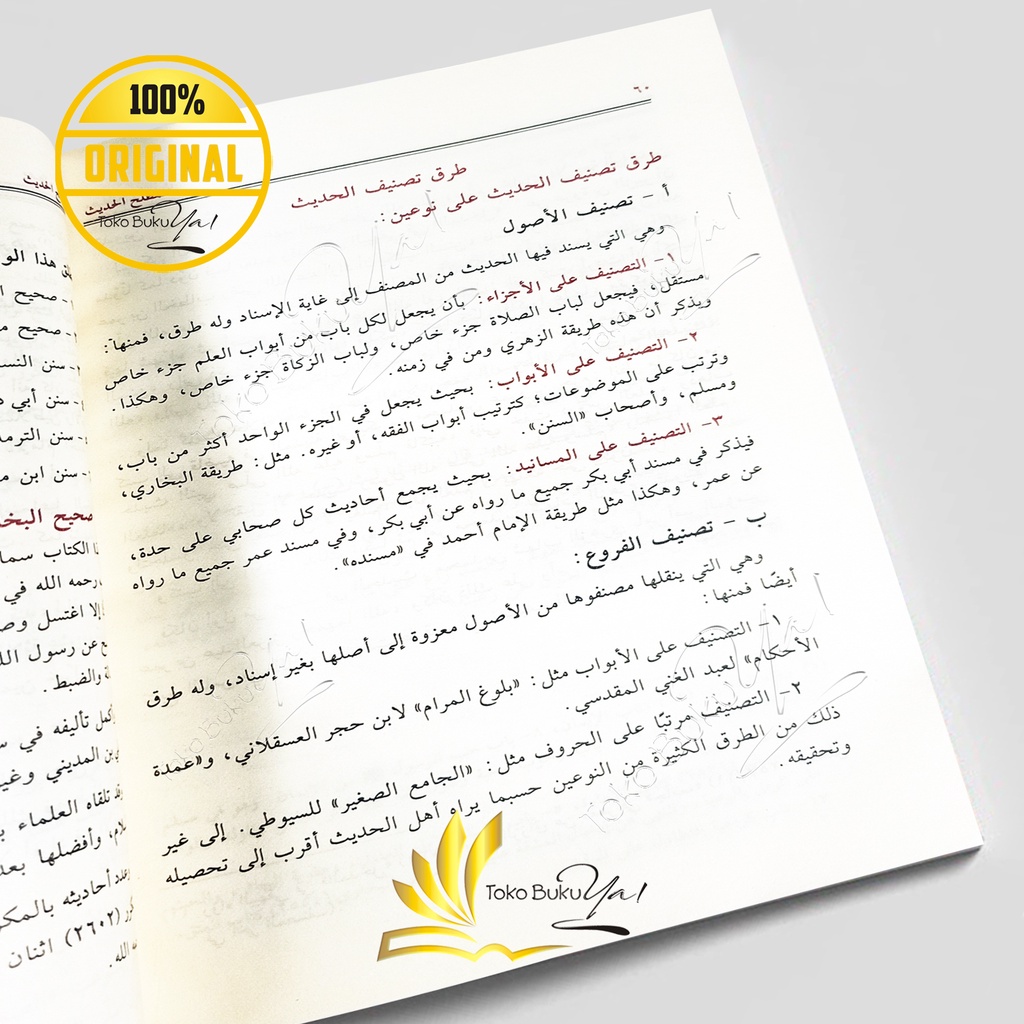 ٦٠
طرق تصنيف الحديث
طرق تصنيف الحديث على نوعين:
أ - تصنيف الأصول
وهي التي يسند فيها الحديث من المصنف إلى غاية الإسناد وله طرق، فمنها:
١- التصنيف على الأجزاء: بأن يجعل لكل باب من أبواب العلم جزء خاص
مستقل، فيجعل لباب الصلاة جزء خاص، ولباب الزكاة جزء خاص، وهكذا.
ويذكر أن هذه طريقة الزهري ومن في زمنه.
٢- التصنيف على الأبواب: بحيث يجعل في الجزء الواحد أكثر من باب،
وترتب على الموضوعات؛ كترتيب أبواب الفقه، أو غيره. مثل: طريقة البخاري،
ومسلم، وأصحاب «السنن».
٣- التصنيف على المسانيد: بحيث يجمع أحاديث كل صحابي على حدة،
فيذكر في مسند أبي بكر جميع ما رواه عن أبي بكر، وفي مسند عمر جميع ما رواه
عن عمر، وهكذا مثل طريقة الإمام أحمد في «مسنده».
ب - تصنيف الفروع:
وهي التي ينقلها مصنفوها من الأصول معزوة إلى أصلها بغير إسناد، وله طرق
أيضًا فمنها:
١- التصنيف على الأبواب مثل: «بلوغ المرام» لابن حجر العسقلاني، و«عمدة
الأحكام» لعبد الغني المقدسي.
٢- التصنيف مرتبًا على الحروف مثل: «الجامع الصغير» للسيوطي. إلى غير
ذلك من الطرق الكثيرة من النوعين حسبما يراه أهل الحديث أقرب إلى تحصيله
وتحقيقه.
الحديث
هذا
- صحيح
- صحيح
- سنن
- سنن أبي
- سنن
- سنن ابن
صحيح
الكتاب
رحمه الله في
إلا اغتسل
عن رسول
والضبط.
تأليفه في
بن المديني
تلقاه العلماء
وأفضلها
أحاديثه
(٢٦٠٢) اثنان
الله.
100%
ORIGINAL
Toko Buku Yal
Toko Buku Yal